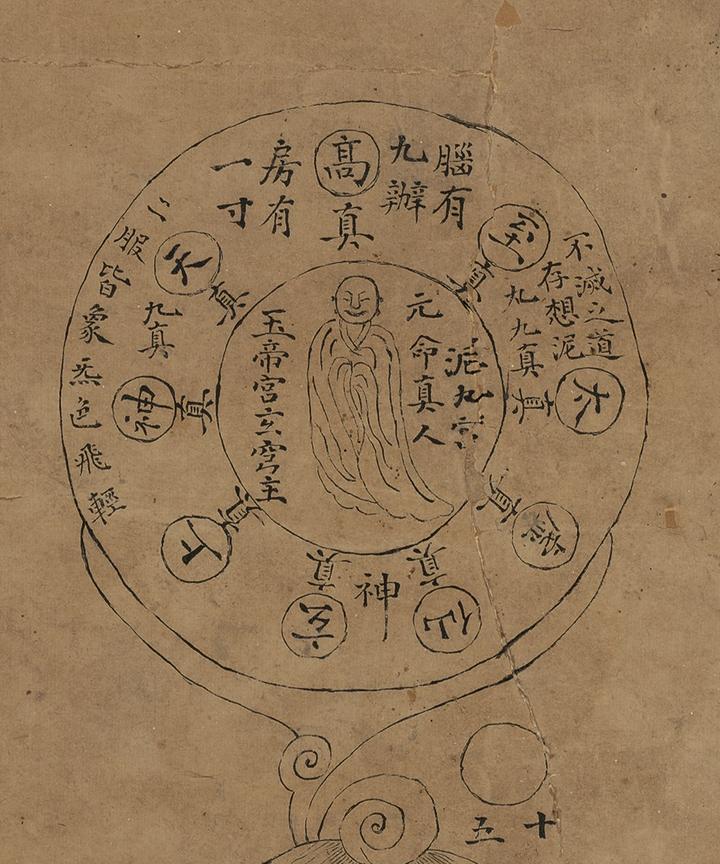 腦有
九辦
高真
房有
一寸
至真
不滅之道
存想泥
丸九真
太真
真
仙真
神
玄真
上真
神真
天真
九真
服皆象炁色飛輕
泥丸宮
元命真人
玉帝宮玄穹主
十五